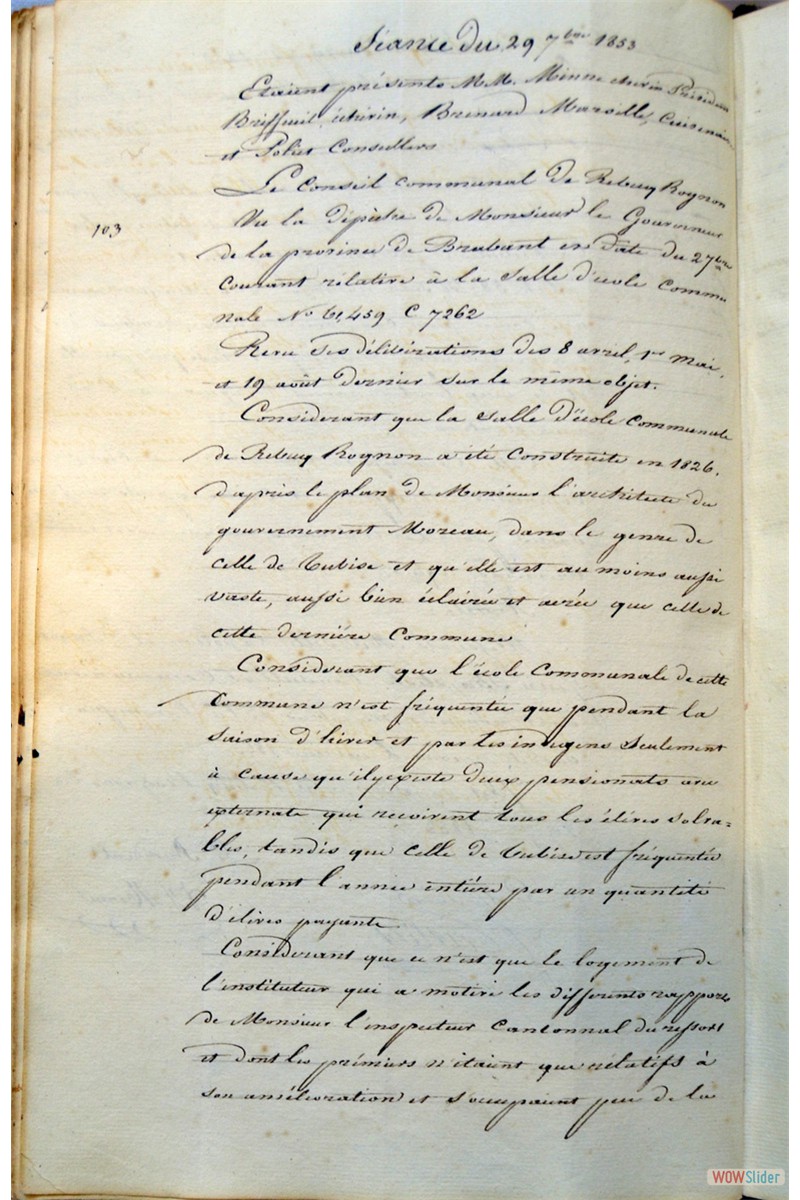 Séance du 29 7bre 1853
Etaient présents M.M. Minne échevin Président
Briffeuil échevin, Brenard Marsille, Cuisenaire
et Poliet Consellers
Le Conseil communal de Rebecq Rognon
103
Vu la dépêche de Monsieur le Gouverneur
de la province de Brabant en date du 27bre
courant rélative à la Salle d'école Commu
nale No 61,459 C 7262
Revu ses délibérations des 8 avril, 1er Mai,
et 19 août dernier sur le même objet.
Considerant que la salle d'école communale
de Rebecq Rognon a été Construite en 1826.
d'après le plan de Monsieur l'architecte du
gouvernement Moreau, dans le genre de
celle de Tubise et qu'elle est au moins aussi
vaste, aussi bien éclairée et aerée que celle de
cette dernière Commune
Considerant que l'école Communale de cette
Commune n'est fréquentée que pendant la
saison d'hiver et par les indigens Seulement
à cause qu'il y existe deux pensionats avec
externate qui reçoivent tous les élèves solva=
bles, tandis que Celle de Tubise est fréquentée
pendant l'année entière par un quantité
d'élèves payants
Considerant que ce n'est que le logement de
l'instituteur qui a motivé les differents rapports
de Monsieur l'inspecteur Cantonnal du ressort
et dont les prémiers n'étaient que rélatifs à
son amélioration et s'occupaient peu de la
WOWSlider